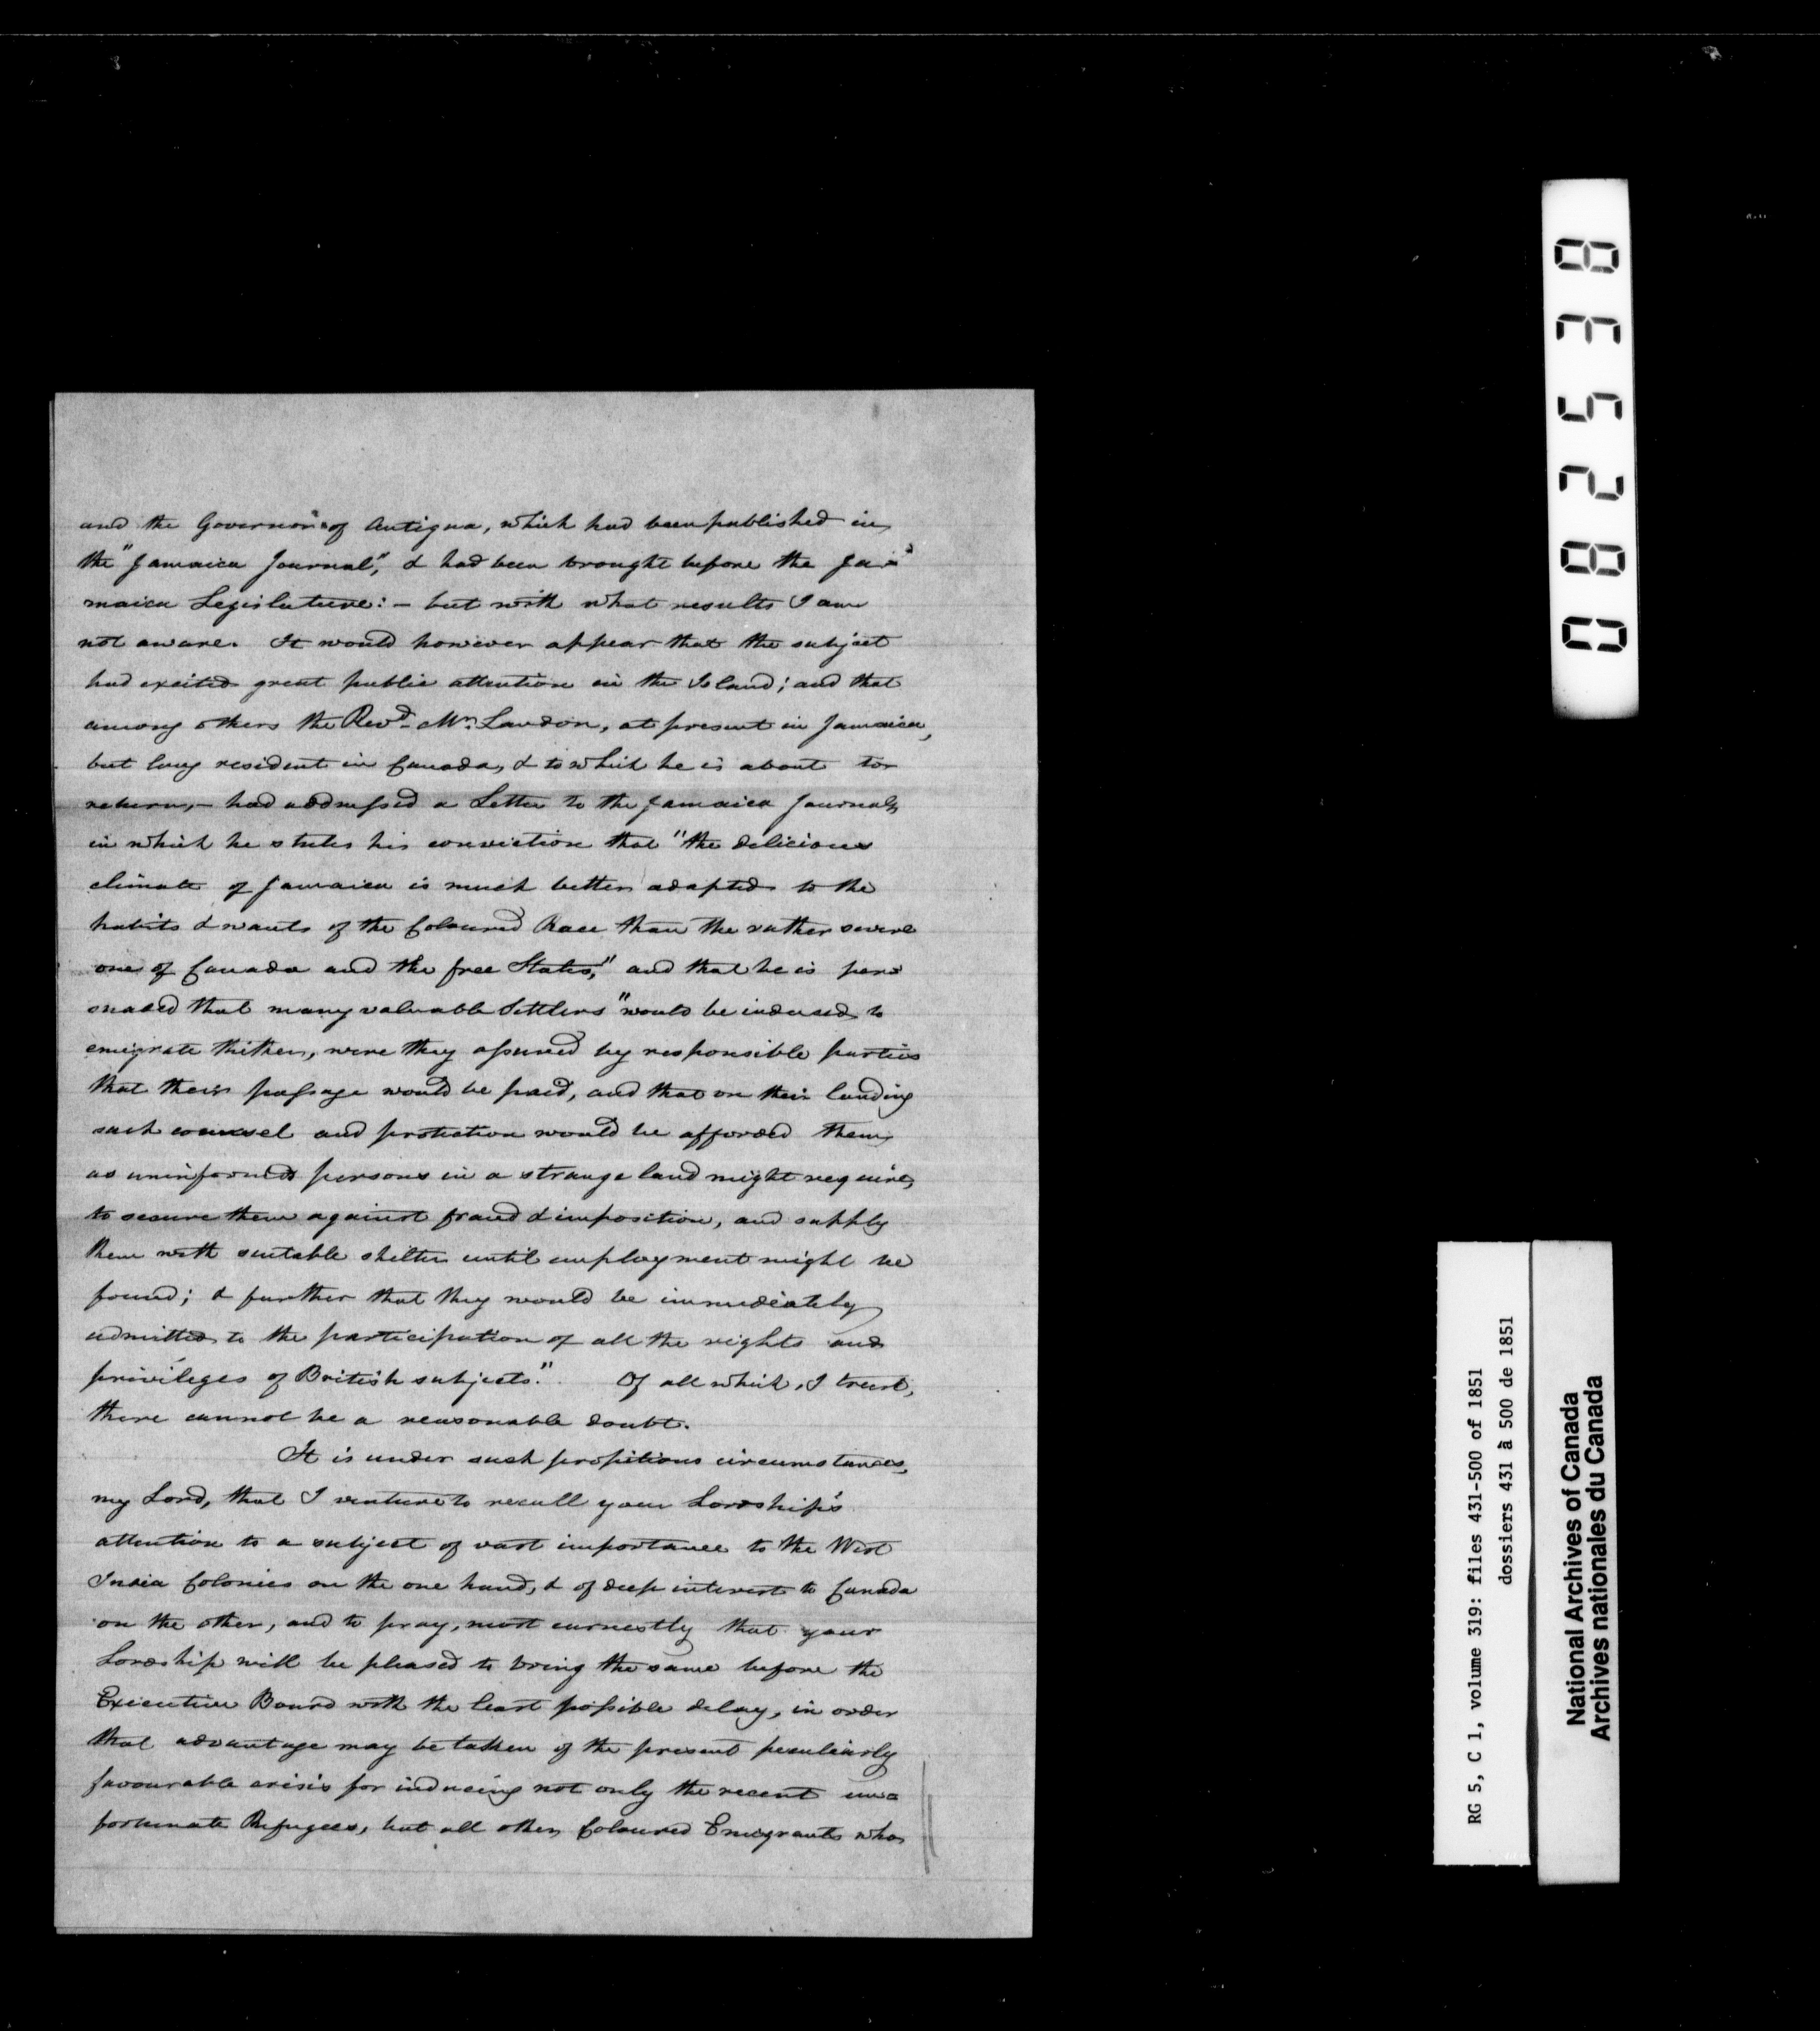 and the Governor of Antigua, which had been published in
the "Jamaica Journal", & had been brought before the Ja-
maica Legislature: - but with what results I am
not aware. It would however appear that the subject
had excited great public attention in the Island; and that
among others the Revd. Mr. Landon, at present in Jamaica,
but long resident in Canada, & to which he is about to
return, - had addressed a Letter to the Jamaica Journal,
in which he states his conviction that "the delicious
climate of Jamaica is much better adapted to the
habits & wants of the Coloured Race than the rather severe
one of Canada and the free States," and that he is per-
suaded that many valuable Settlers "would be induced to
emigrate thither, were they assured by responsible parties
that their passage would be paid, and that on their landing
such counsel and protection would be afforded them,
as uninformed persons in a strange land might require,
to secure them against fraud & imposition, and supply
them with suitable shelter until employment might be
found; & further that they would be immediately
admitted to the participation of all the rights and
privileges of British subjects." Of all which, I trust,
there cannot be a reasonable doubt.
It is under such propitious circumstances,
my Lord, that I venture to recall your Lordship's
attention to a subject of vast importance to the West
India Colonies on the one hand, & of deep interest to Canada
on the other, and to pray, most earnestly that your
Lordship will be pleased to bring the same before the
Executive Board with the least possible delay, in order
that advantage may be taken of the present peculiarly
favourable crisis for inducing not only the recent un-
fortunate Refugees, but all other Coloured Emigrants who
082538
RG 5, C 1, volume 319: files 431-500 of 1851
dossiers 431 à 500 de 1851
National Archives of Canada
Archives nationales du Canada